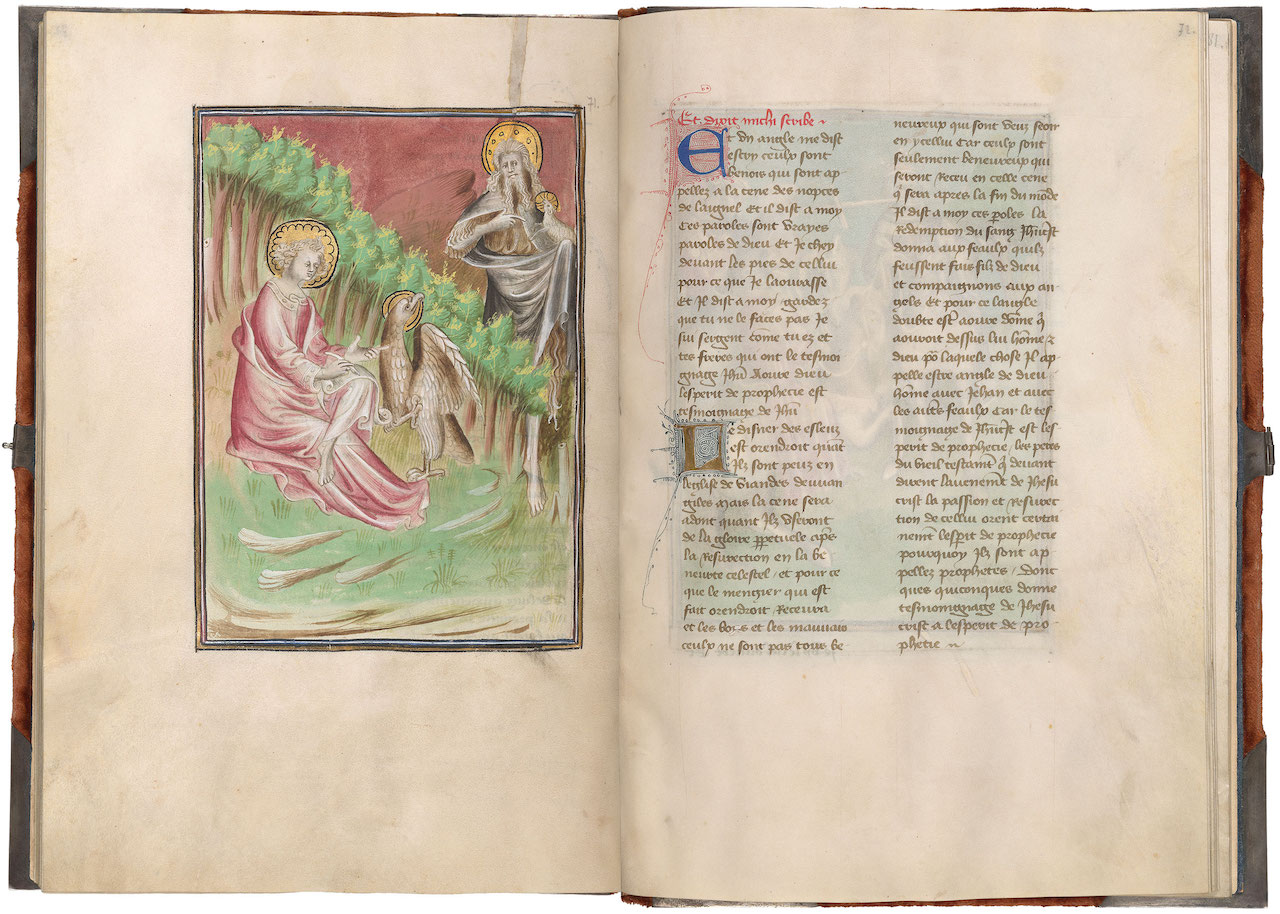 71.
72.
Et dixit michi scribe
Et un angle me dist
escry ceulx sont
benois qui sont ap
pellez a la cene des nopces
de laignel Et il dist a moy
Ces paroles sont vrayes
paroles de dieu Et Je chey
devant les pies de cellui
pour ce que Je laourasse
Et Il dist a moy gardez
que tu ne le faces pas Je
sui sergent come tu ez et
tes freres qui ont le tesmoi
gnage Jhu Aoure dieu
lesperit de prophecie est
tesmoignage de Jhu
Le disner des esleuz
est orendroit quant
Ilz sont peuz en
leglise de viandes deuuan
giles Mais la cene sera
adont quant Ilz useront
de la gloire ppetuele aps
la Resurection en la be
neurte celestel / et pour ce
que le mengier qui est
fait orendroit Recevra
et les bons et les mauvais
ceulx ne sont pas tous be
neureux qui sont veuz seoir
en ycellui Car ceulx sont
seulement beneureux qui
seront Receu en celle cene
q sera apres la fin du mode
Il dist a moy ces poles la
Redemption du sang Jhucrist
donna aux feaulx quilz
feussent fais filz de dieu
et compaignons aux an
gels Et pour ce langle
doubte estre aoure dome q
aouroit dessus lui home &
dieu po laquele chose Il ap
pelle estre angle de dieu
home avec Jehan et avec
les autres feaulx Car le tes
moignage de Jhucrist est les
perit de prophecie / les peres
du vieil testamt q devant
dirent lavenemet de Jhesu
crist la passion et Resurrec
tion de cellui orent certai
nemet lesprit de prophecie
pourquoy Ilz sont ap
pellez prophetes / Donc
ques quiconques donne
tesmoignage de Jhesu
crist a lesperit de pro
phecie